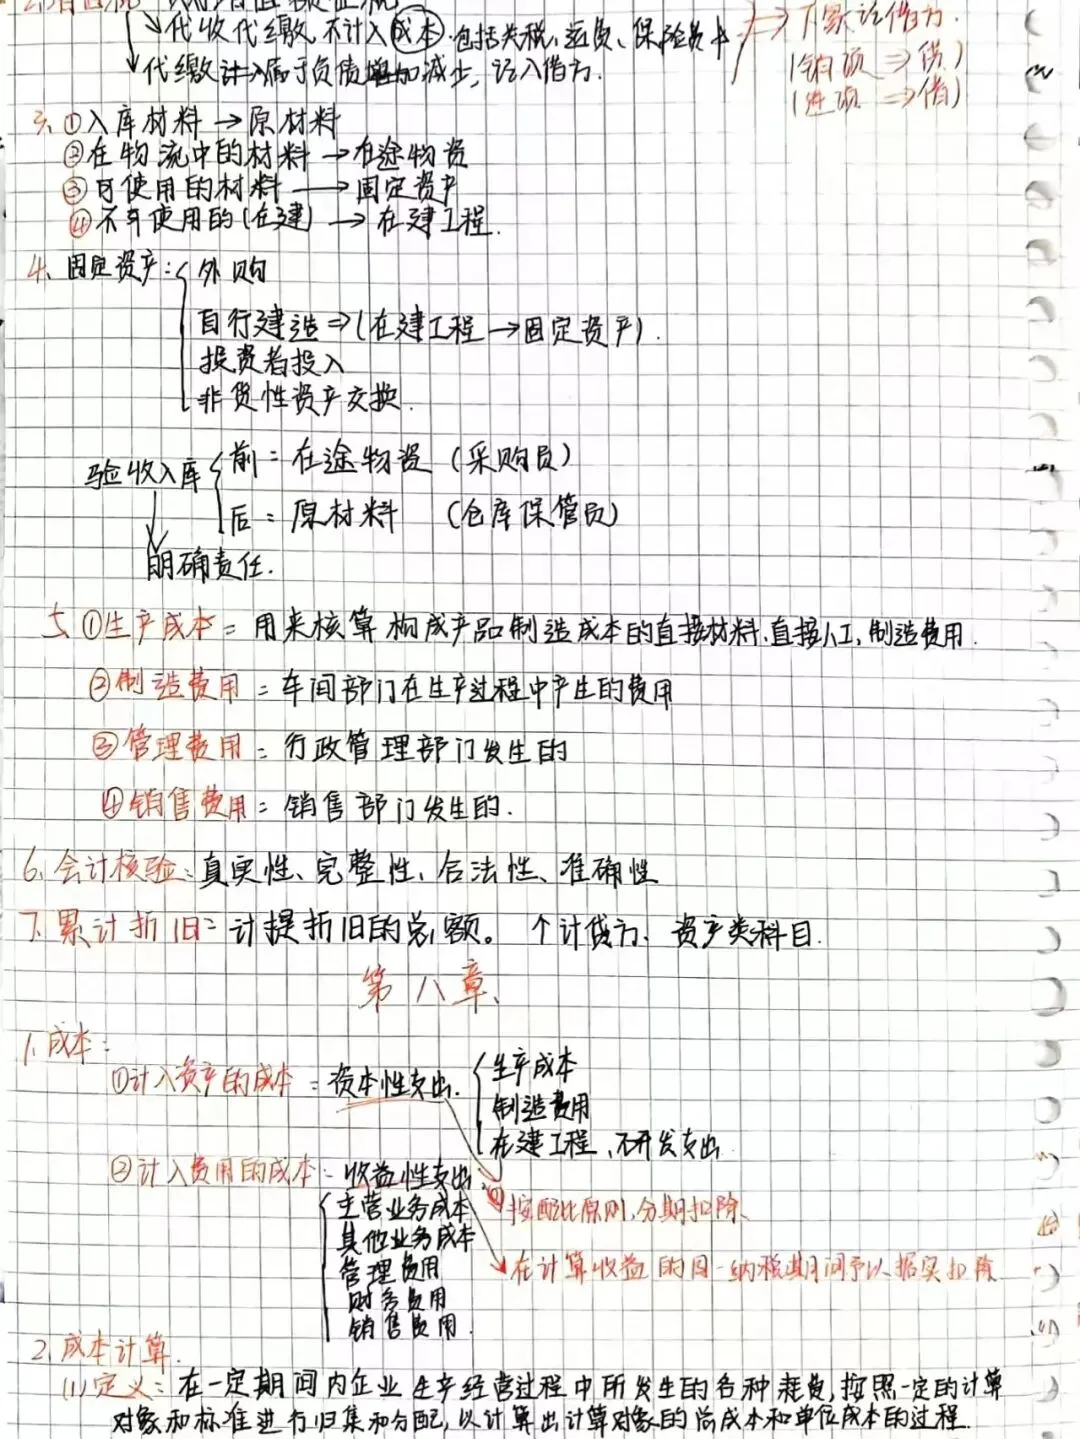 代收代缴 不计入成本 包括关税、运费、保险费
下累 记借方.
代缴 属于负债 减少, 记入借方.
(销项 ⇒ 贷)
(进项 ⇒ 借)
3. ①入库材料 → 原材料
②在物流中的材料 → 在途物资
③可使用的材料 → 固定资产
④不可使用的(在建) → 在建工程.
4. 固定资产: 外购
自行建造 ⇒ (在建工程 → 固定资产).
投资者投入
非货性资产交换.
验收入库 前: 在途物资 (采购员)
后: 原材料 (仓库保管员)
明确责任.
5. ①生产成本: 用来核算构成产品制造成本的直接材料、直接人工、制造费用.
②制造费用: 车间部门在生产过程中产生的费用
③管理费用: 行政管理部门发生的
④销售费用: 销售部门发生的.
6. 会计核验: 真实性、完整性、合法性、准确性
7. 累计折旧: 计提折旧的总额。 个计贷方. 资产类科目.
第八章.
1. 成本:
①计入资产的成本: 资本性支出. 生产成本
制造费用
在建工程、开发支出
②计入费用的成本: 收益性支出:
主营业务成本
按配比原则, 分期扣除.
其他业务成本
管理费用
在计算收益的同一纳税期间予以据实扣除
财务费用
销售费用.
2. 成本计算.
(1)定义: 在一定期间内企业生产经营过程中所发生的各种耗费, 按照一定的计算
对象和标准进行归集和分配, 以计算出计算对象的总成本和单位成本的过程.